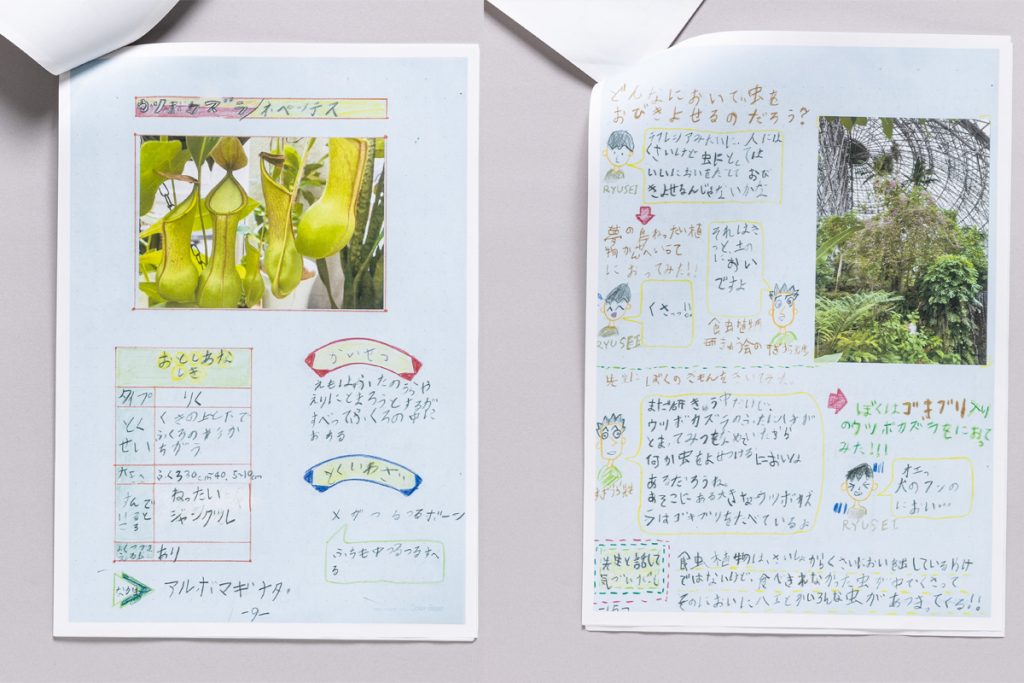 ウツボカズラ/ネペンテス
おとしあな
しき
タイプ りく
とくせい
くきの上としたで
ふくろのようすが
ちがう
ふくろ30cm
ねったい
ジャングル
あり
なかま
アルボマギナタ。
かいせつ
えものはふたのうらや
えりにとまろうとするが
すべってふくろの中に
おちる
とくいわざ
メガつるつるボーン
ふちも中もつるつるすべ
る
-9-
どんなにおいで虫を
おびきよせるのだろう?
ラフレシアみたいに、人には
くさいけど虫にとっては
いいにおいをだして おび
きよせるんじゃないかな
RYUSEI
夢の島ねったい植
物かんへいって
においってみた!!
それはき
っと、土の
におい
ですよ
くさっっ!!
RYUSEI
食虫植物
研きゅう会の
先生にぼくのぎもんをきいてみた。
まだ研きゅう中だけど、
ウツボカズラのふたに
何か虫をよせつけるにおいは
あるだろうね。
あそこにある大きなウツボカズ
ラはゴキブリをたべているよ
ぼくはゴキブリ入り
のウツボカズラをにおって
みた!!!
オエっ
犬のフンの
におい…
RYUSEI
先生と話して
気づいたこと
食虫植物は、さいしょからくさいにおいを出しているわけ
ではないけど、食べきれなかった虫が中でくさって
そのにおいにハエとかいろんな虫があつまってくる!!
-15-